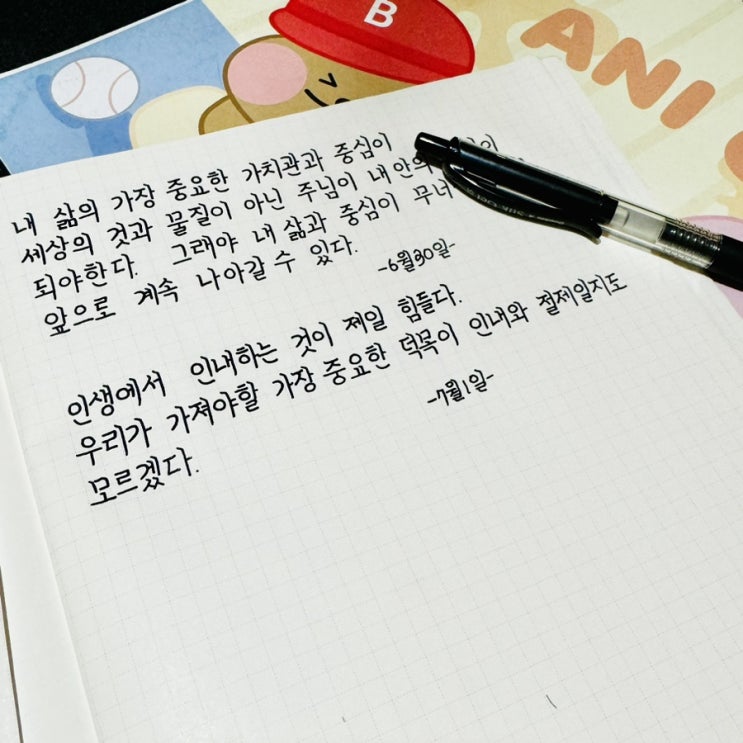 B
ANI
내 삶의 가장 중요한 가치관과 중심이
세상의 것과 물질이 아닌 주님이 내안의
되야한다. 그래야 내 삶과 중심이 무너
앞으로 계속 나아갈 수 있다.
-6월30일-
인생에서 인내하는 것이 제일 힘들다.
우리가 가져야할 가장 중요한 덕목이 인내와 절제일지도
모르겠다.
-7월1일-